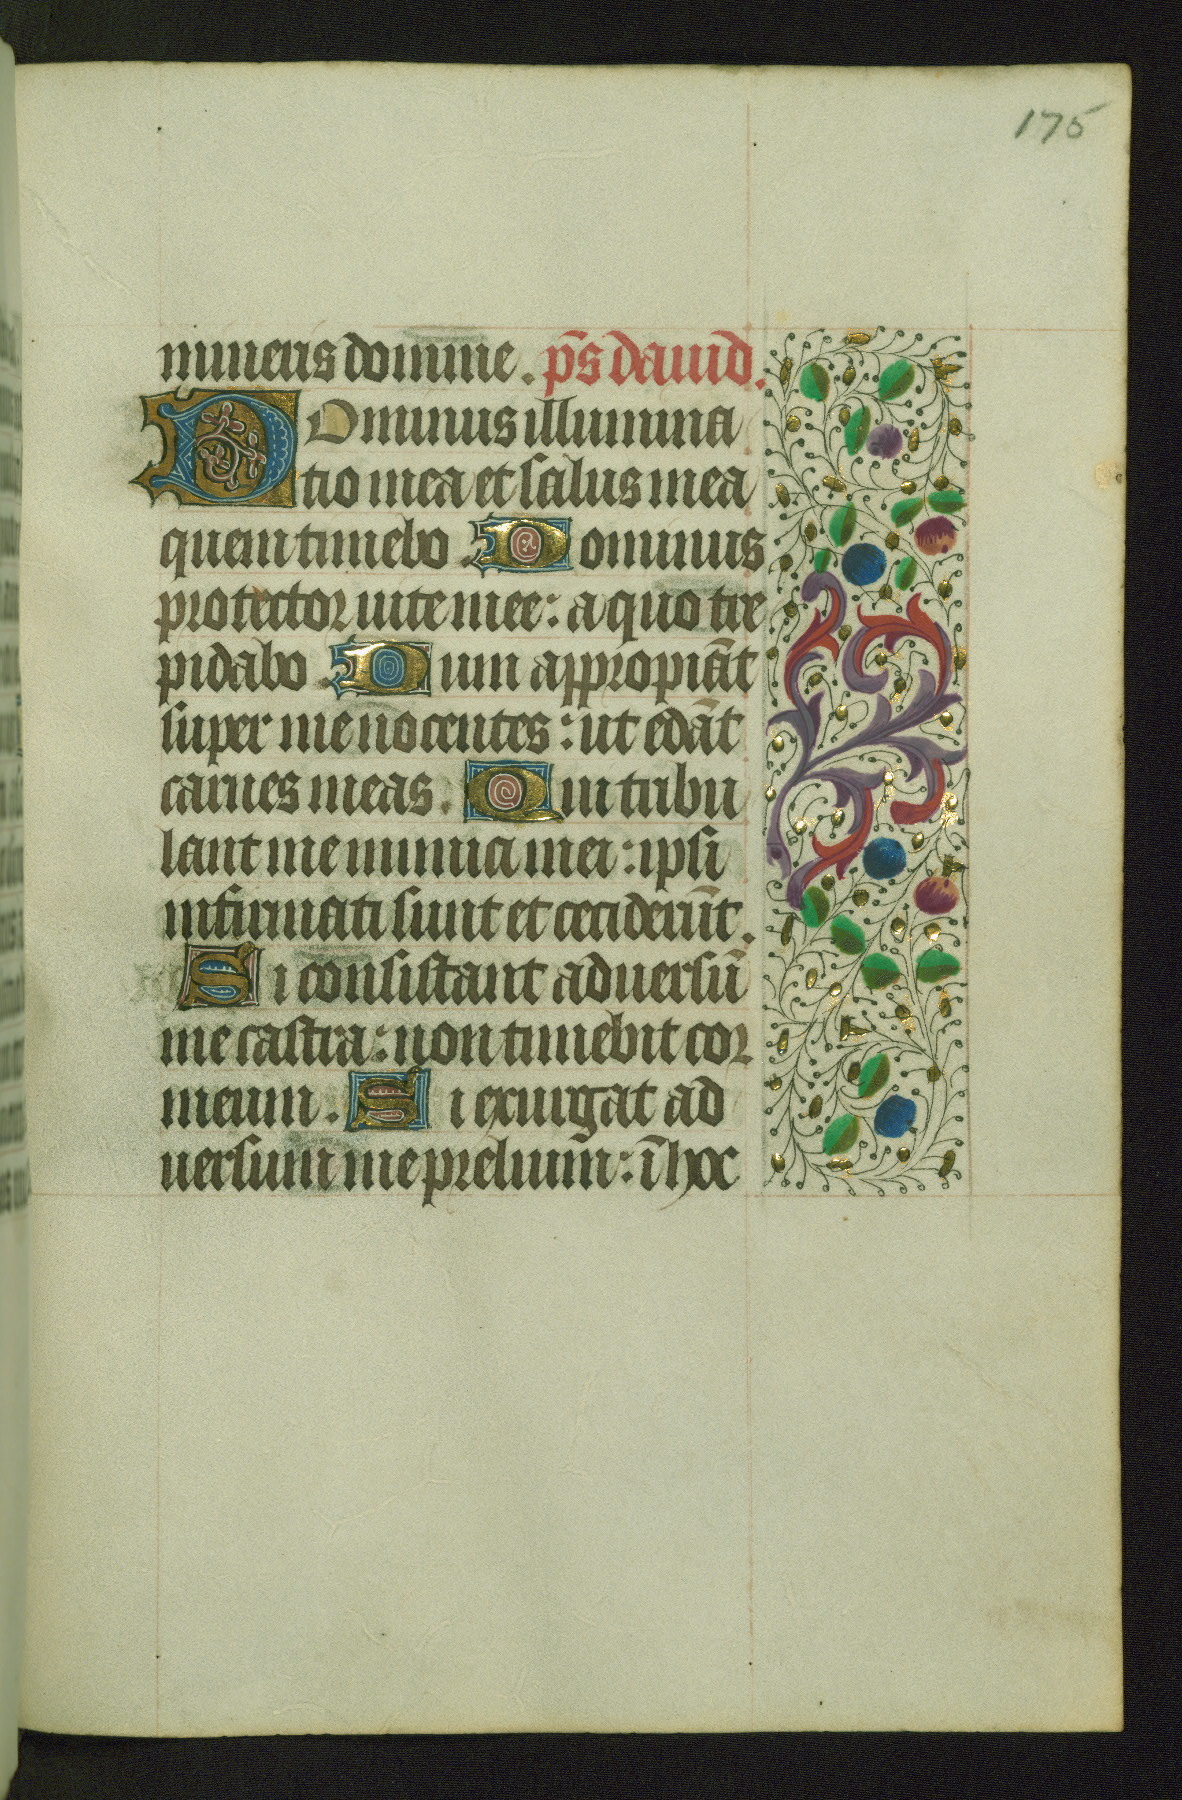 175
mineris domine . p̄s dauid.
Dominus illumina
tio mea et salus mea
quem timebo . Dominus
protector uite mee : a quo tre
pidabo . Dum appropiāt
super me nocentes : ut edāt
carnes meas . Qui tribu
lant me inimici mei : ipsi
infirmati sunt et ceciderūt .
Si consistant aduersū
me castra : non timebit cor
meum . Si exurgat ad
uersum me prelium̄ : ī hoc